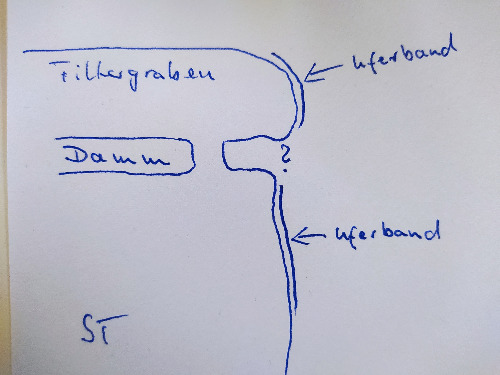 Uferband
Filtergraben
Damm
?
Uferband
ST